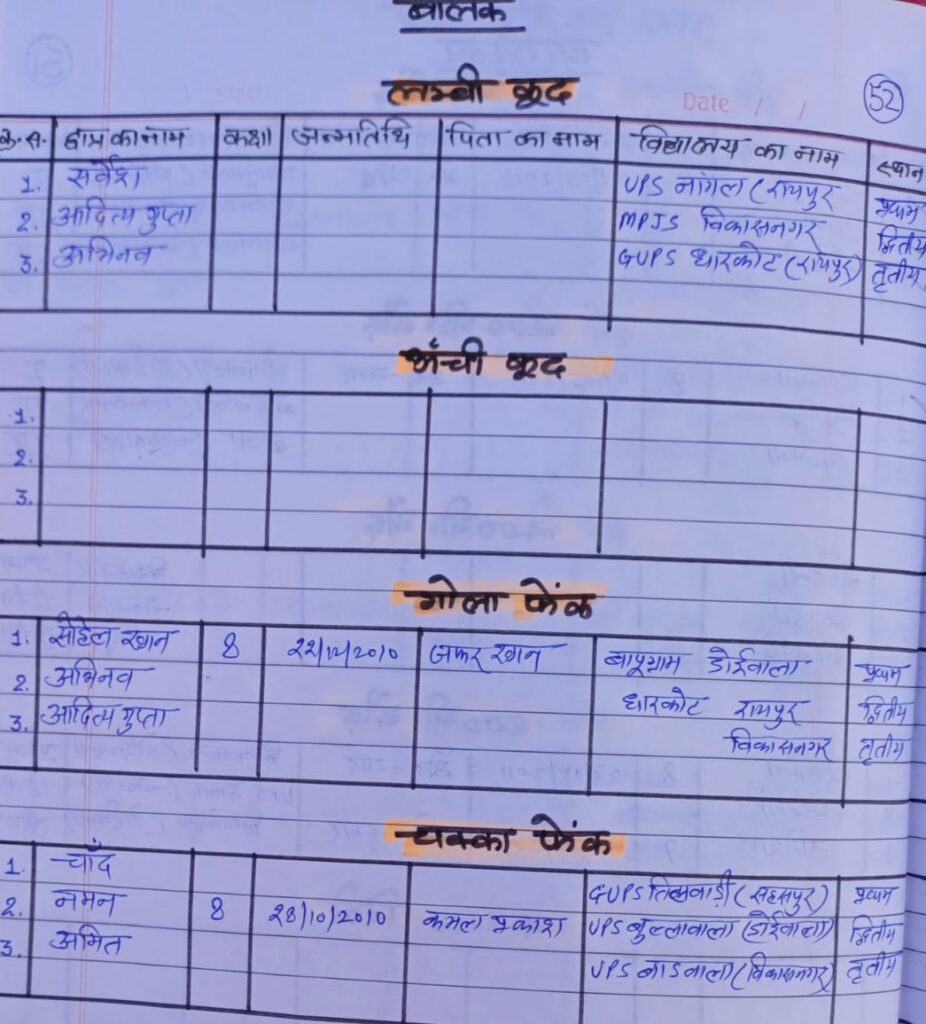 बालक
लम्बी कूद
52
Date / /
क्र.स. छात्र का नाम कक्षा जन्मतिथि पिता का नाम विद्यालय का नाम स्थान
1. सर्वेश UPS नांगल (रायपुर प्रथम
2. आदित्य गुप्ता MPJS विकासनगर द्वितीय
3. अभिनव GUPS धारकोट (रायपुर) तृतीय
ऊँची कूद
1.
2.
3.
गोला फेंक
1. सोहेल खान 8 22/12/2010 जफर खान बापूग्राम डोईवाला प्रथम
2. अभिनव धारकोट रायपुर द्वितीय
3. आदित्य गुप्ता विकासनगर तृतीय
चक्का फेंक
1. चाँद GUPS (सहसपुर) प्रथम
2. नमन 8 28/10/2010 कमल प्रकाश UPS बुल्लावाला (डोईवाला) द्वितीय
3. अमित UPS (विकासनगर) तृतीय